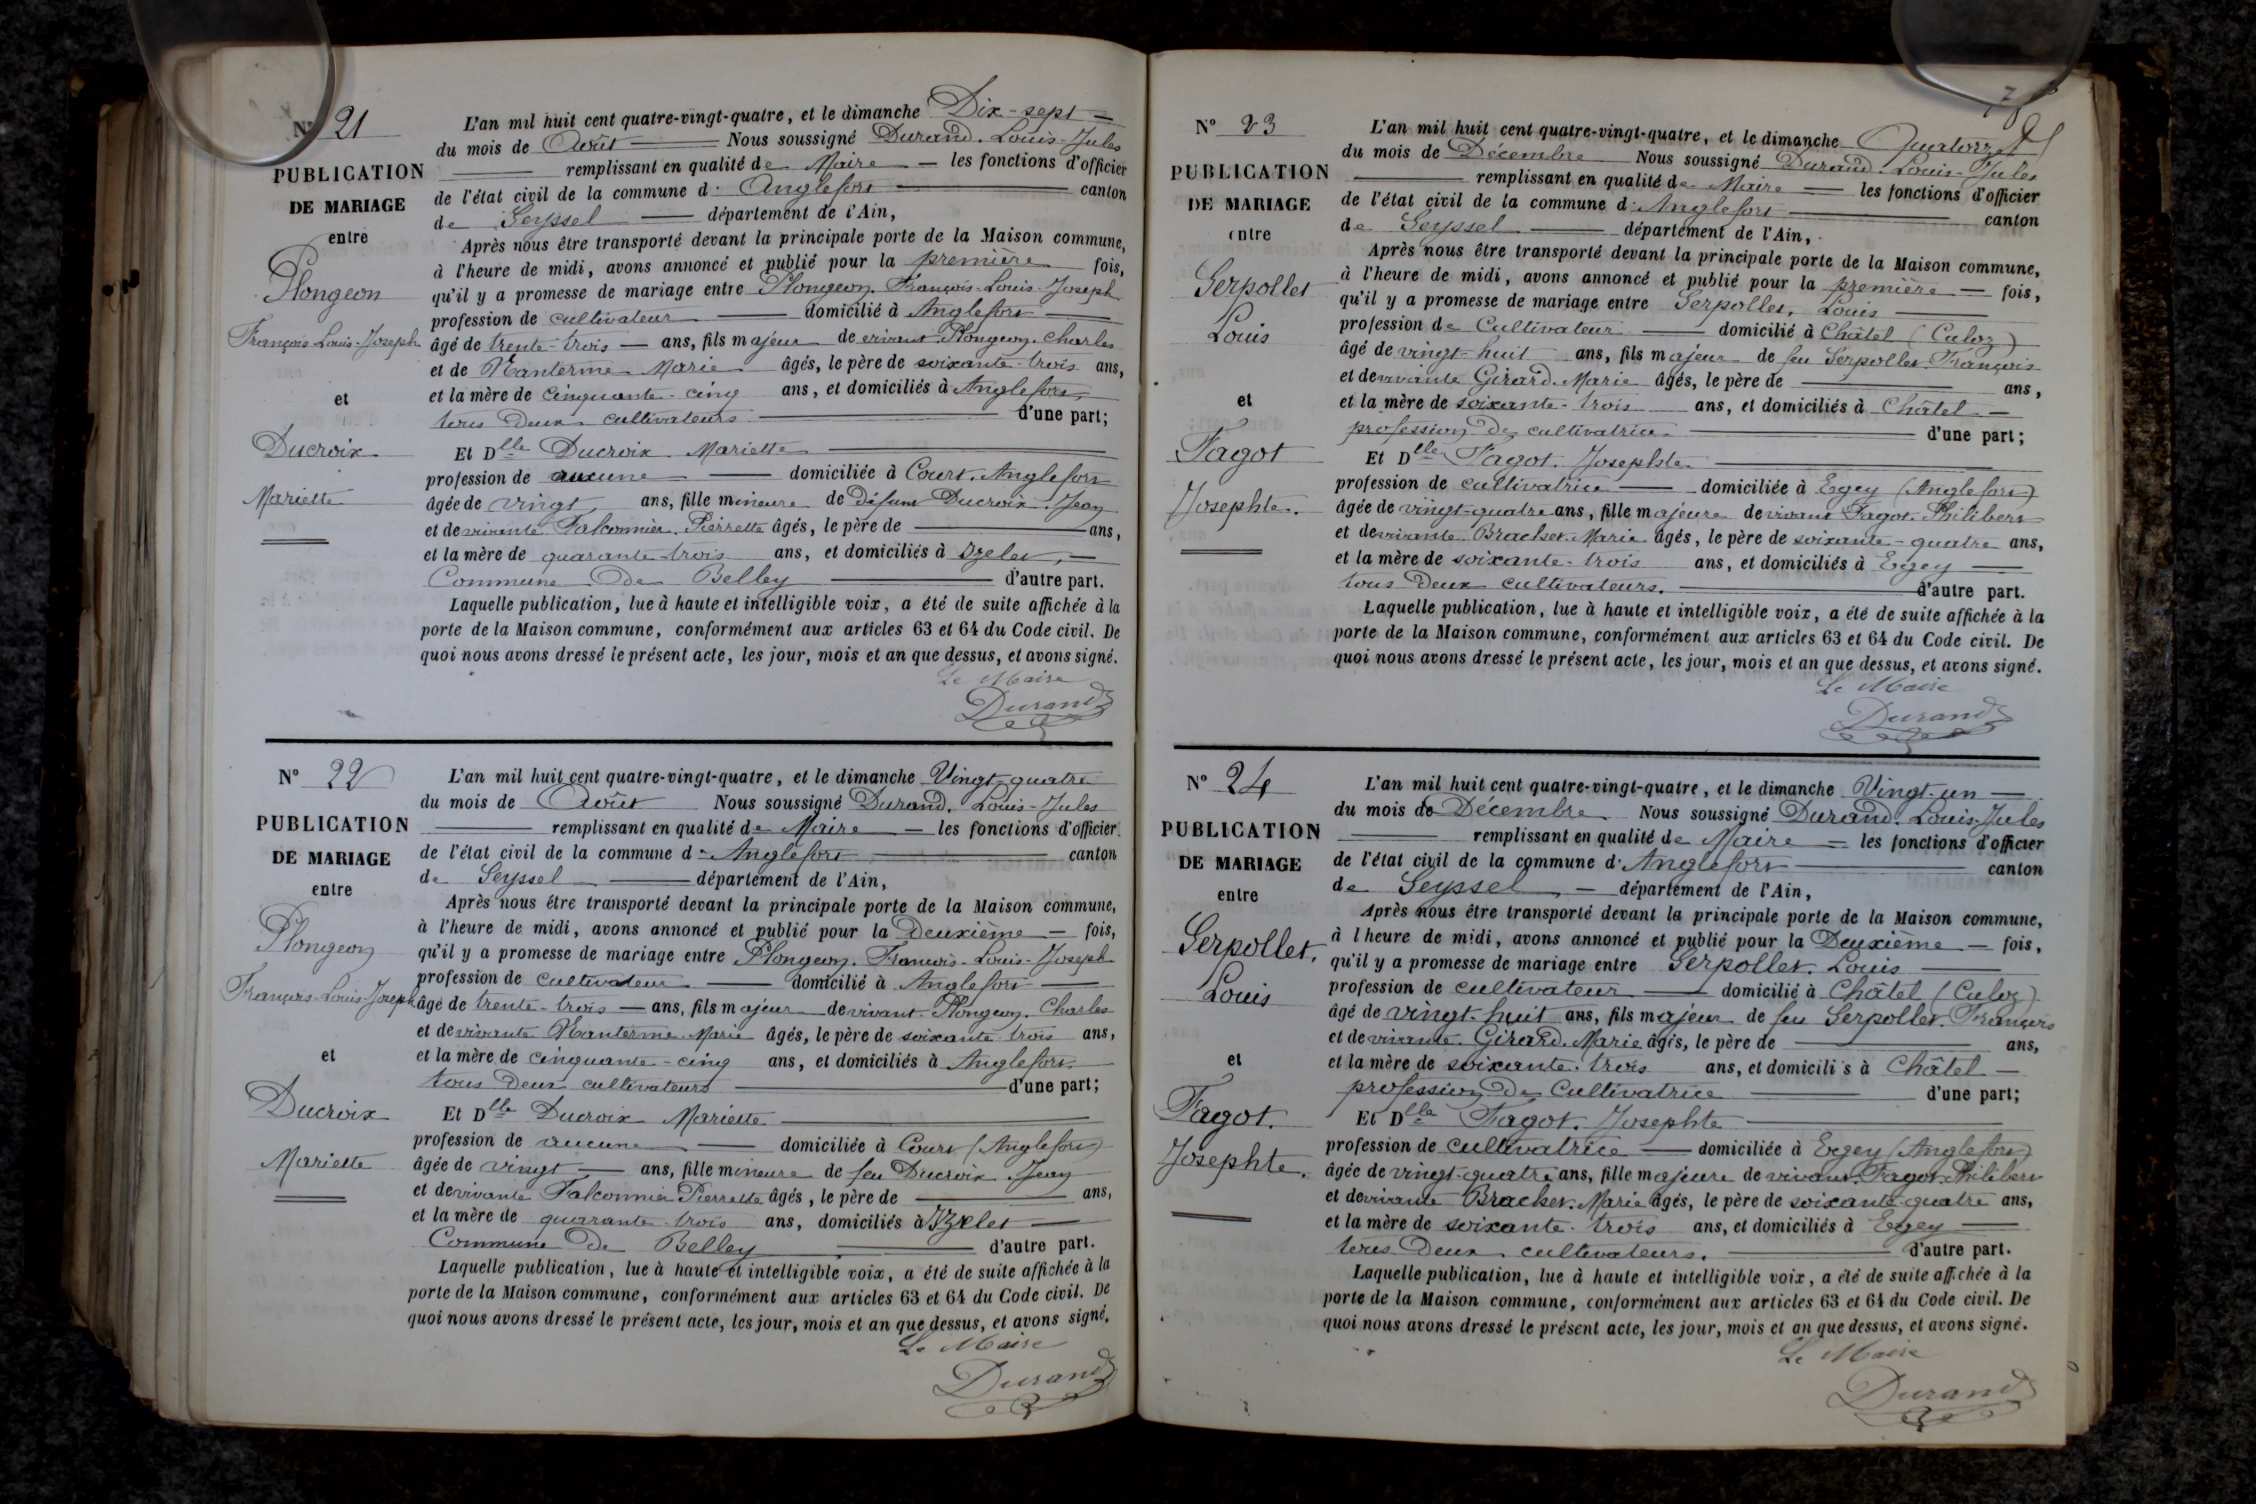 N° 21
PUBLICATION
DE MARIAGE
entre
Plongeon
François Louis-Joseph
et
Ducroix
Mariette
L'an mil huit cent quatre-vingt-quatre, et le dimanche Dix-sept
du mois de Août Nous soussigné Durand. Louis-Jules
remplissant en qualité de Maire les fonctions d'officier
de l'état civil de la commune d' Anglefort canton
de Seyssel département de l'Ain,
Après nous être transporté devant la principale porte de la Maison commune,
à l'heure de midi, avons annoncé et publié pour la première fois,
qu'il y a promesse de mariage entre Plongeon. François-Louis-Joseph
profession de cultivateur domicilié à Anglefort
âgé de trente-trois ans, fils majeur de vivant Plongeon. Charles
et de Nanterme Marie âgés, le père de soixante-trois ans,
et la mère de cinquante-cinq ans, et domiciliés à Anglefort,
tous deux cultivateurs d'une part;
Et Dlle Ducroix Mariette
profession de aucune domiciliée à Court. Anglefort
âgée de vingt ans, fille mineure de défunt Ducroix. Jean
et de vivante Falconnier. Pierrette âgés, le père de ans,
et la mère de quarante-trois ans, et domiciliés à Izelet,
Commune de Belley d'autre part.
Laquelle publication, lue à haute et intelligible voix, a été de suite affichée à la
porte de la Maison commune, conformément aux articles 63 et 64 du Code civil. De
quoi nous avons dressé le présent acte, les jour, mois et an que dessus, et avons signé.
Le Maire
Durand
N° 22
PUBLICATION
DE MARIAGE
entre
Plongeon
François-Louis-Joseph
et
Ducroix
Mariette
L'an mil huit cent quatre-vingt-quatre, et le dimanche Vingt-quatre
du mois de Août Nous soussigné Durand. Louis-Jules
remplissant en qualité de Maire les fonctions d'officier
de l'état civil de la commune d' Anglefort canton
de Seyssel département de l'Ain,
Après nous être transporté devant la principale porte de la Maison commune,
à l'heure de midi, avons annoncé et publié pour la Deuxième fois,
qu'il y a promesse de mariage entre Plongeon. François-Louis-Joseph
profession de cultivateur domicilié à Anglefort
âgé de trente-trois ans, fils majeur de vivant Plongeon. Charles
et de vivante Nanterme Marie âgés, le père de soixante-trois ans,
et la mère de cinquante-cinq ans, et domiciliés à Anglefort.
tous deux cultivateurs d'une part;
Et Dlle Ducroix Mariette
profession de aucune domiciliée à Court (Anglefort)
âgée de vingt ans, fille mineure de feu Ducroix. Jean
et de vivante Falconnier Pierrette âgés, le père de ans,
et la mère de quarante-trois ans, domiciliés à Izelet
Commune de Belley d'autre part.
Laquelle publication, lue à haute et intelligible voix, a été de suite affichée à la
porte de la Maison commune, conformément aux articles 63 et 64 du Code civil. De
quoi nous avons dressé le présent acte, les jour, mois et an que dessus, et avons signé.
Le Maire
Durand
N° 23
PUBLICATION
DE MARIAGE
entre
Serpollet
Louis
et
Fagot
Josephte.
L'an mil huit cent quatre-vingt-quatre, et le dimanche Quatorze
du mois de Décembre Nous soussigné Durand. Louis-Jules
remplissant en qualité de Maire les fonctions d'officier
de l'état civil de la commune d' Anglefort canton
de Seyssel département de l'Ain,
Après nous être transporté devant la principale porte de la Maison commune,
à l'heure de midi, avons annoncé et publié pour la première fois,
qu'il y a promesse de mariage entre Serpollet, Louis
profession de Cultivateur domicilié à Châtel (Culoz)
âgé de vingt-huit ans, fils majeur de feu Serpollet François
et de vivante Girard. Marie âgés, le père de ans,
et la mère de soixante-trois ans, et domiciliés à Châtel
profession de cultivatrice d'une part;
Et Dlle Fagot. Josephte
profession de cultivatrice domiciliée à Ezgey (Anglefort)
âgée de vingt-quatre ans, fille majeure de vivant Fagot. Philibert
et de vivante Brachet. Marie âgés, le père de soixante-quatre ans,
et la mère de soixante-trois ans, et domiciliés à Ezgey
tous deux cultivateurs. d'autre part.
Laquelle publication, lue à haute et intelligible voix, a été de suite affichée à la
porte de la Maison commune, conformément aux articles 63 et 64 du Code civil. De
quoi nous avons dressé le présent acte, les jour, mois et an que dessus, et avons signé.
Le Maire
Durand
N° 24
PUBLICATION
DE MARIAGE
entre
Serpollet,
Louis
et
Fagot.
Josephte.
L'an mil huit cent quatre-vingt-quatre, et le dimanche Vingt-un
du mois de Décembre Nous soussigné Durand. Louis-Jules
remplissant en qualité de Maire les fonctions d'officier
de l'état civil de la commune d' Anglefort canton
de Seyssel département de l'Ain,
Après nous être transporté devant la principale porte de la Maison commune,
à l'heure de midi, avons annoncé et publié pour la Deuxième fois,
qu'il y a promesse de mariage entre Serpollet. Louis
profession de cultivateur domicilié à Châtel (Culoz)
âgé de vingt-huit ans, fils majeur de feu Serpollet. François
et de vivante Girard. Marie âgés, le père de ans,
et la mère de soixante-trois ans, et domiciliés à Châtel
profession de Cultivatrice d'une part;
Et Dlle Fagot. Josephte
profession de cultivatrice domiciliée à Ezgey (Anglefort)
âgée de vingt-quatre ans, fille majeure de vivant. Fagot. Philibert
et de vivante Brachet. Marie âgés, le père de soixante-quatre ans,
et la mère de soixante-trois ans, et domiciliés à Ezgey
tous deux cultivateurs. d'autre part.
Laquelle publication, lue à haute et intelligible voix, a été de suite affichée à la
porte de la Maison commune, conformément aux articles 63 et 64 du Code civil. De
quoi nous avons dressé le présent acte, les jour, mois et an que dessus, et avons signé.
Le Maire
Durand